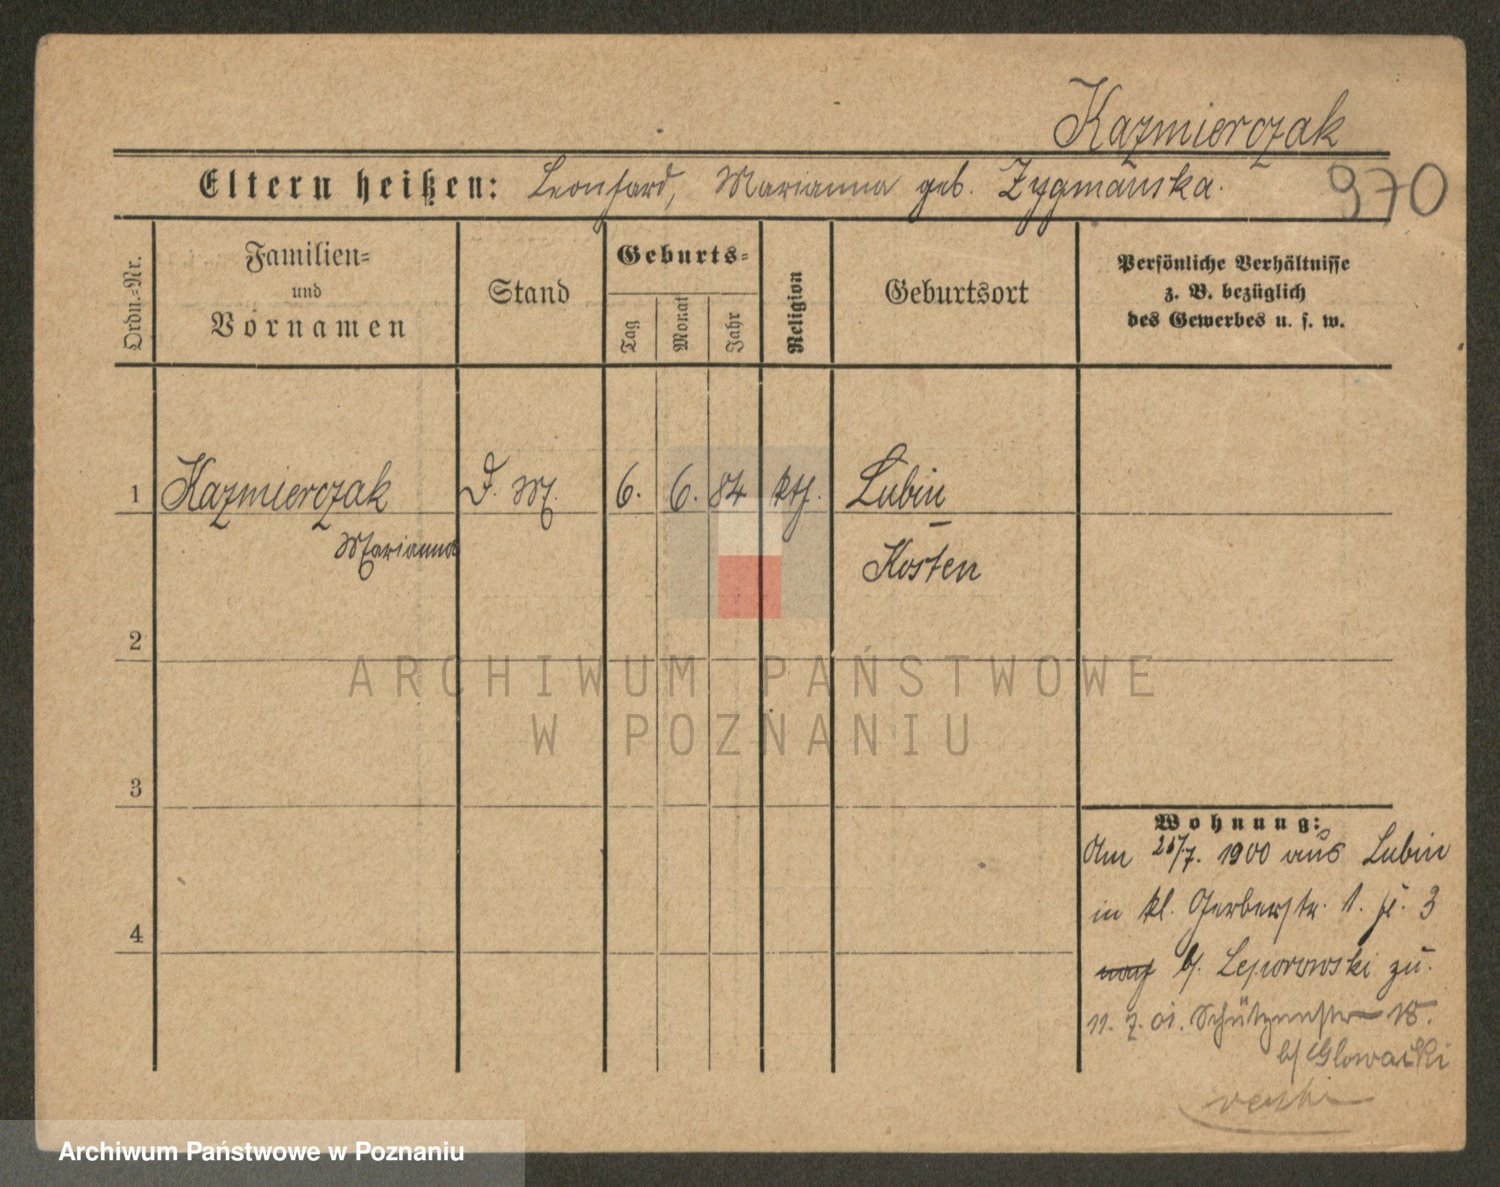 Kazmierczak
Eltern heißen: Leonhard, Marianna geb. Zygmańska.
970
Ordn.-Nr.
Familien-
und
Vornamen
Stand
Geburts-
Tag
Monat
Jahr
Religion
Geburtsort
Persönliche Verhältnisse
z. B. bezüglich
des Gewerbes u. s. w.
1 Kazmierczak D. M. 6. 6. 84 kth. Lubin
Marianna
Kosten
2
3
4
ARCHIWUM PAŃSTWOWE
W POZNANIU
Wohnung:
Am 1900 aus Lubin
in kl. Gerberstr. 1. 3
b/. Leporowski zu.
11. 7. 01. Schützenstr 18.
b/ Glowacki
Archiwum Państwowe w Poznaniu